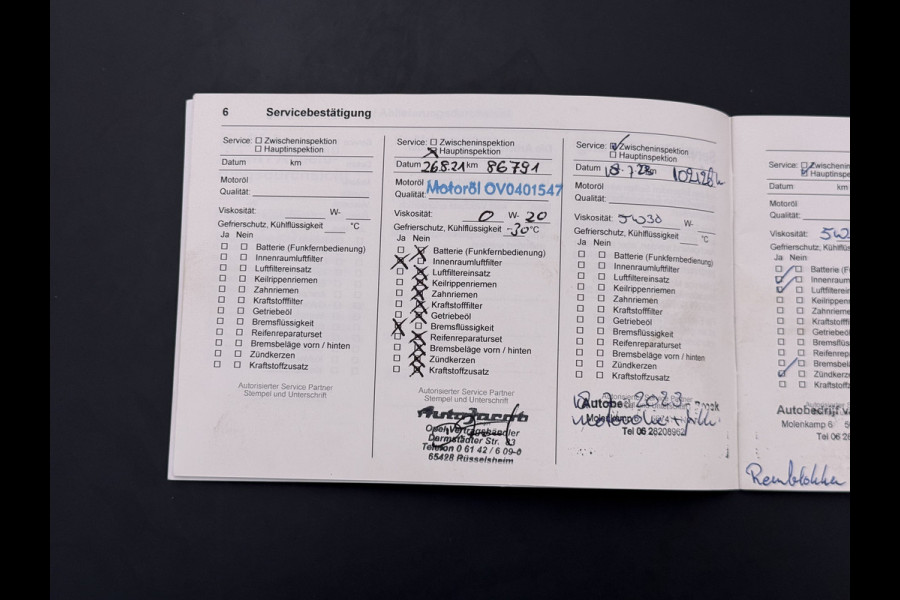 6 Servicebestätigung
Service: Zwischeninspektion
Hauptinspektion
Datum km
Motoröl
Qualität:
Viskosität: W-
Gefrierschutz, Kühlflüssigkeit °C
Ja Nein
Batterie (Funkfernbedienung)
Innenraumluftfilter
Luftfiltereinsatz
Keilrippenriemen
Zahnriemen
Kraftstofffilter
Getriebeöl
Bremsflüssigkeit
Reifenreparaturset
Bremsbeläge vorn / hinten
Zündkerzen
Kraftstoffzusatz
Autorisierter Service Partner
Stempel und Unterschrift
Service: Zwischeninspektion
Hauptinspektion
Datum 26.8.21 km 86791
Motoröl Motoröl OV0401547
Qualität:
Viskosität: 0 W- 20
Gefrierschutz, Kühlflüssigkeit -30 °C
Ja Nein
Batterie (Funkfernbedienung)
Innenraumluftfilter
Luftfiltereinsatz
Keilrippenriemen
Zahnriemen
Kraftstofffilter
Getriebeöl
Bremsflüssigkeit
Reifenreparaturset
Bremsbeläge vorn / hinten
Zündkerzen
Kraftstoffzusatz
Autorisierter Service Partner
Stempel und Unterschrift
AutoJacob
Opel Vertragshändler
Darmstädter Str.
Telefon 0 61 42 / 6 09-0
65428 Rüsselsheim
Service: Zwischeninspektion
Hauptinspektion
Datum km
Motoröl
Qualität:
Viskosität: 5W30 W-
Gefrierschutz, Kühlflüssigkeit °C
Ja Nein
Batterie (Funkfernbedienung)
Innenraumluftfilter
Luftfiltereinsatz
Keilrippenriemen
Zahnriemen
Kraftstofffilter
Getriebeöl
Bremsflüssigkeit
Reifenreparaturset
Bremsbeläge vorn / hinten
Zündkerzen
Kraftstoffzusatz
2023
Tel 06 28208962
Service: Zwischeninsp
Hauptinspe
Datum km
Motoröl
Qualität:
Viskosität: 5W
Gefrierschutz, Kühlflüss
Ja Nein
Batterie (F
Innenraum
Luftfilterei
Keilrippen
Zahnrieme
Kraftstofff
Getriebeöl
Bremsflüss
Reifenrepa
Bremsbelä
Zündkerze
Kraftstoffz
Autobedrijf
Molenkamp 6
Tel 06 2
Remblokken